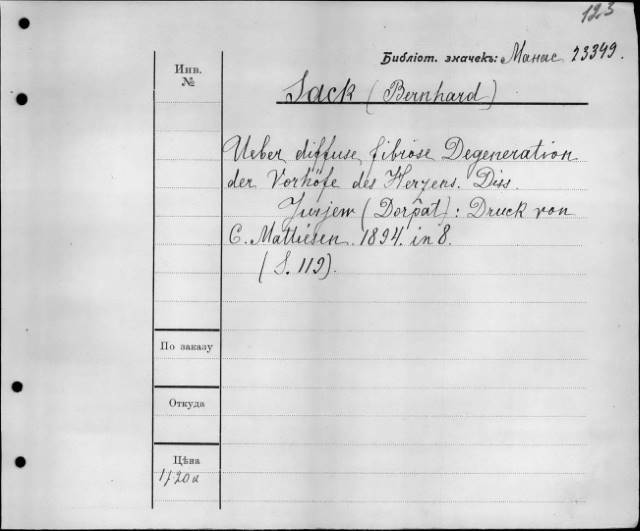 123
Библіот. значекъ: Манас 23349.
Инв.
№
Sack (Bernhard)
Ueber diffuse fibröse Degeneration
der Vorhöfe des Herzens. Diss.
Jurjew (Dorpat): Druck von
C. Mattiesen. 1894. in 8.
(S. 119).
По заказу
Откуда
Цѣна